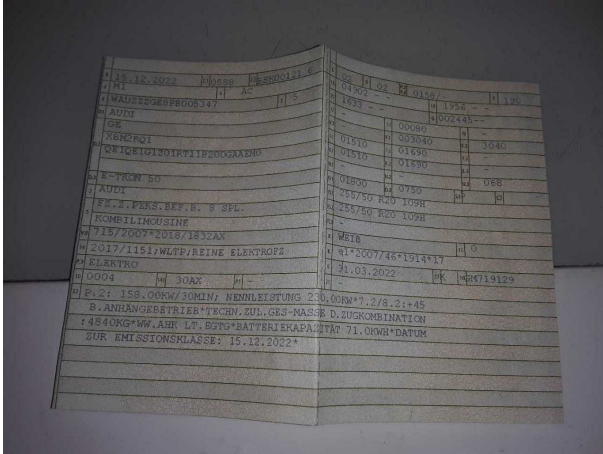 15.12.2022 0588
M1 AC
WAUZZZGE8PB005347 5
AUDI
GE
QE1QE1G1301RT11P200GAAEM0
E-TRON 50
AUDI
FZ.Z.PERS.BEF.B. 8 SPL.
KOMBILIMOUSINE
715/2007*2018/1832AX
2017/1151;WLTP;REINE ELEKTROFZ
ELEKTRO
0004 30AX -
P.2: 158.00KW/30MIN; NENNLEISTUNG 230.00KW*7.2/8.2:+45
B.ANHÄNGEBETRIEB*TECHN.ZUL.GES-MASSE D.ZUGKOMBINATION
:4840KG*WW.AHK LT.EGTG*BATTERIEKAPAZITÄT 71.0KWH*DATUM
ZUR EMISSIONSKLASSE: 15.12.2022*
02 02 0158/- 190
04902 -- 1956 --
1633 -- -
- 002445--
00080 -
003040 3040
01510 01690 -
01510 01690 -
- - 068
01800 0750 - -
255/50 R20 109H
255/50 R20 109H
-
WEIß 0
e1*2007/46*1914*17
31.03.2022 K